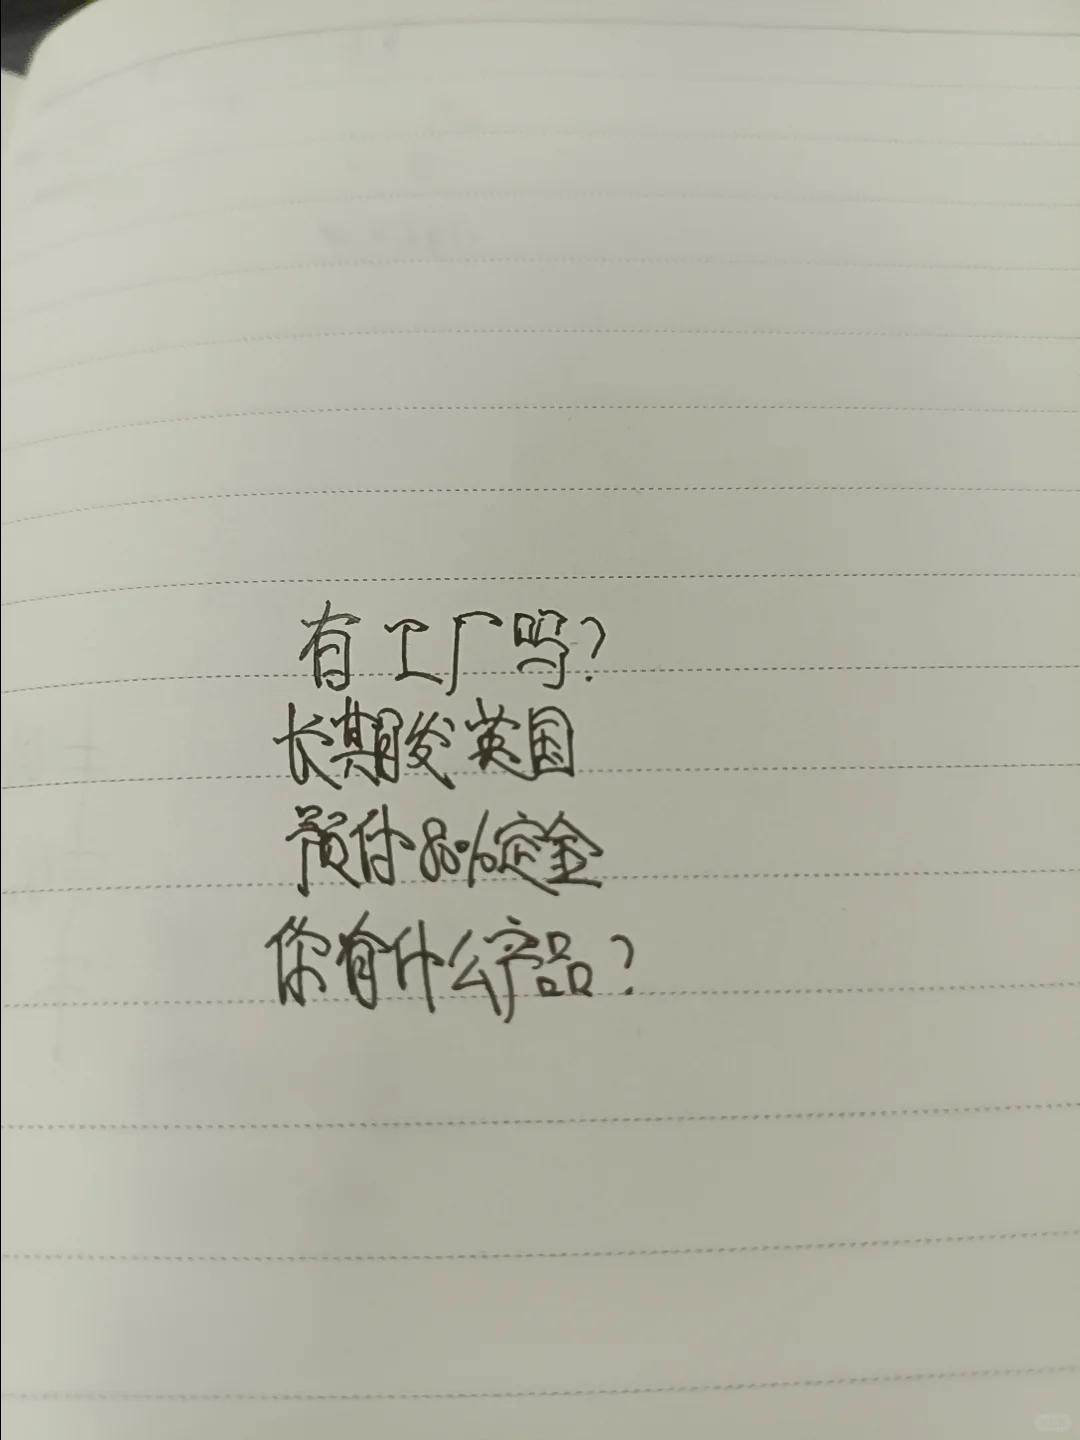 有工厂吗?
长期发英国
预付80%定金
你有什么产品?